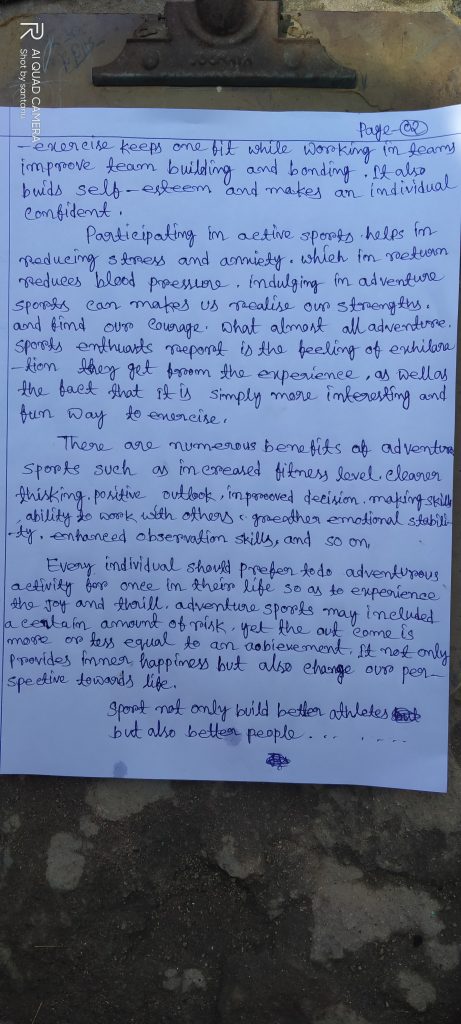 AI QUAD CAMERA
Shot by santanu
Page-02
-exercise keeps one fit while working in teams
improve team building and bonding. It also
buids self-esteem and makes an individual
confident.
Participating in active sports helps in
reducing stress and anxiety. which in return
reduces blood pressure. indulging in adventure
sports can makes us realise our strengths.
and find our courage. what almost all adventure.
sports enthuasts report is the feeling of exhilara
-tion they get from the experience, as well as
the fact that it is simply more interesting and
fun way to exercise.
There are numerous benefits of adventure
sports such as increased fitness level, clearer
thisking, positive outlook, improoved decision. making skills
, ability to work with others. greather emotional stabili-
-ty. enhanced observation skills, and so on,
Every individual should prefer to do adventurous
activity for once in their life so as to experience
the joy and thrill. adventure sports may included
a certain amount of risk, yet the out come is
more or less equal to an achievement. It not only
provides inner happiness but also change our per-
spective towards life.
Sport not only build better athletes
but also better people... .....